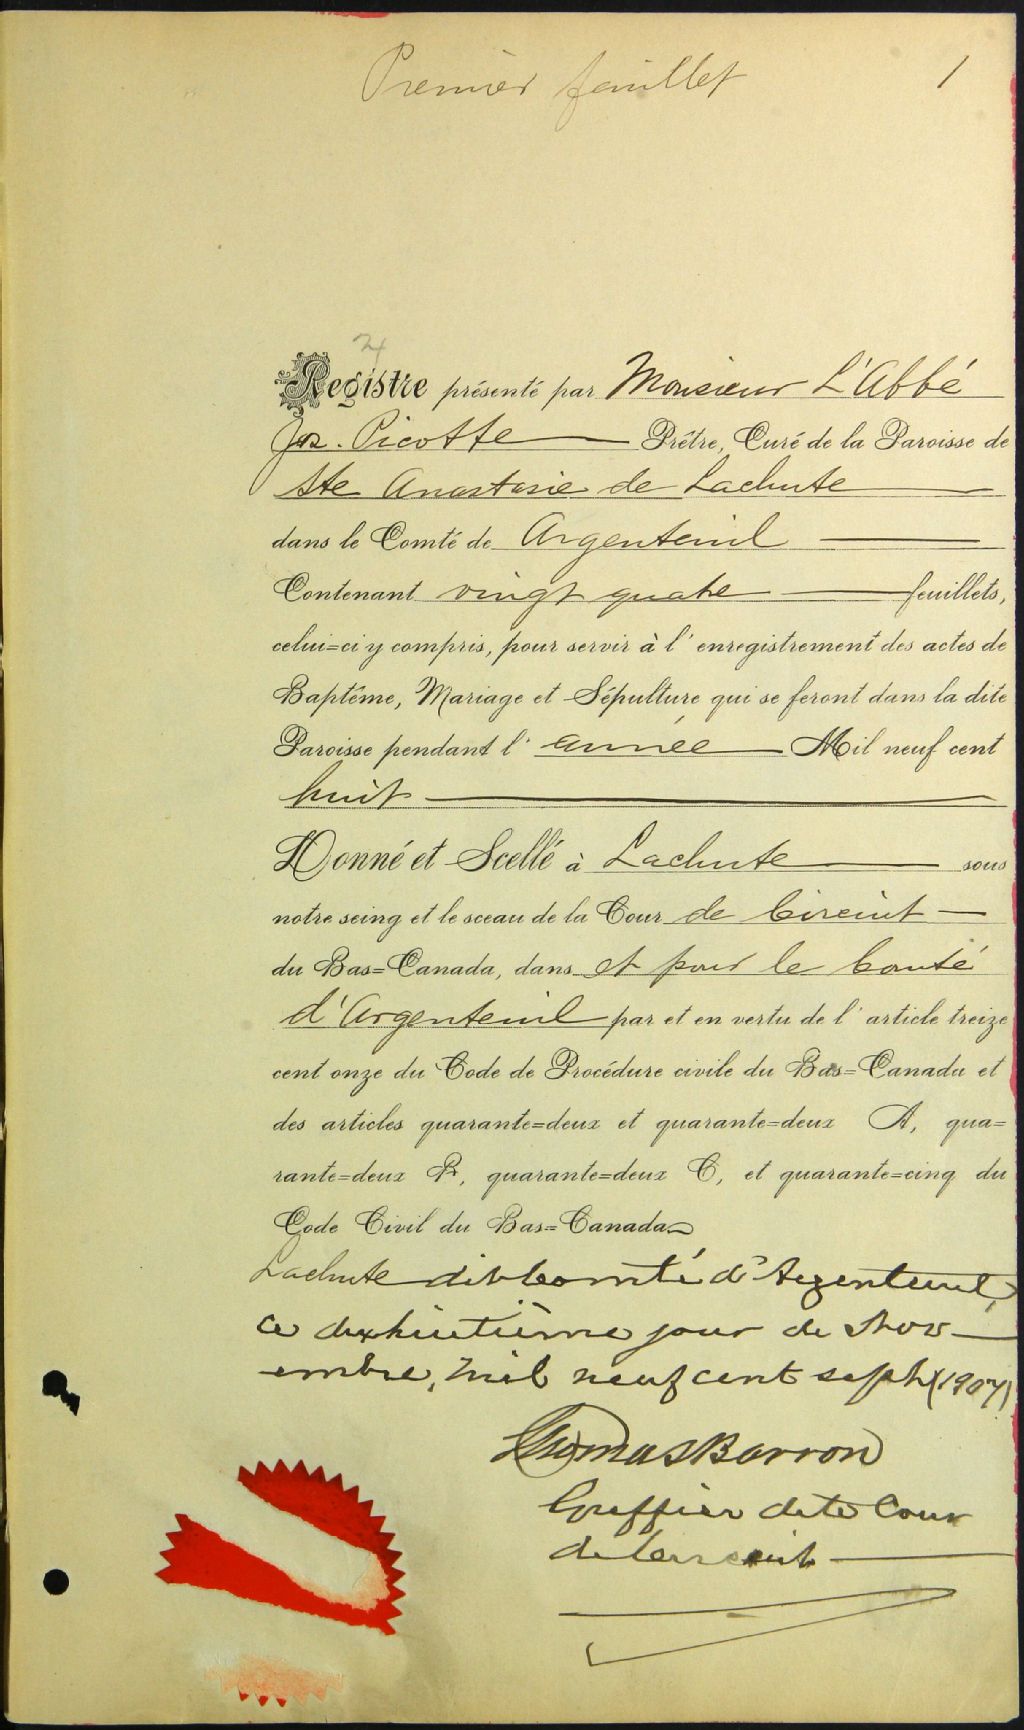 Premier feuillet 1
24
Registre présenté par Monsieur L'Abbé
Jos. Picotte Prêtre, Curé de la Paroisse de
Ste Anastasie de Lachute
dans le Comté de Argenteuil
Contenant vingt quatre feuillets,
celui=ci y compris, pour servir à l'enregistrement des actes de
Baptême, Mariage et Sépulture qui se feront dans la dite
Paroisse pendant l'année Mil neuf cent
huit
Donné et Scellé à Lachute sous
notre seing et le sceau de la Cour de Circuit
du Bas=Canada, dans et pour le Comté
d'Argenteuil par et en vertu de l'article treize
cent onze du Code de Procédure civile du Bas=Canada et
des articles quarante=deux et quarante=deux A, qua=
rante=deux B, quarante=deux C, et quarante=cinq du
Code Civil du Bas=Canada
Lachute dit Comté d'Argenteuil,
ce dixhuitième jour de Nov
embre, mil neuf cent sept (1907)
Thomas Barron
Greffier de la Cour
de Circuit